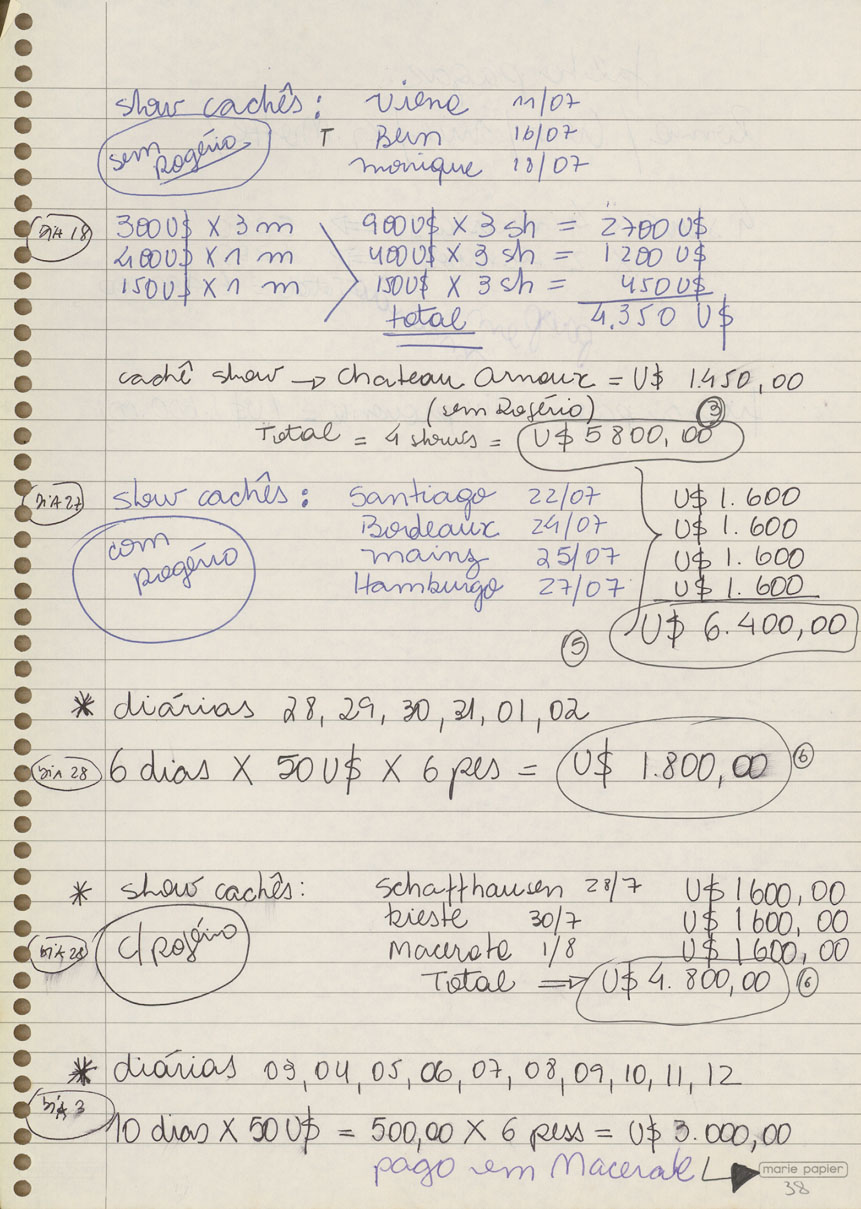 show cachês: Viena 11/07
sem Rogério T Bern 16/07
monique 18/07
DIA 18 300 U$ X 3 m 900 U$ X 3 sh = 2700 U$
400 U$ X 1 m 400 U$ X 3 sh = 1200 U$
150 U$ X 1 m 150 U$ X 3 sh = 450 U$
total 4.350 U$
cachê show → Chateau Arnoux = U$ 1.450,00
(sem Rogério) 3
Total = 4 shows = U$ 5800,00
DIA 27 show cachês: Santiago 22/07 U$ 1.600
com Rogério Bordeaux 24/07 U$ 1.600
mainz 25/07 U$ 1.600
Hamburgo 27/07 U$ 1.600
5 U$ 6.400,00
* diárias 28, 29, 30, 31, 01, 02
DIA 28 6 dias X 50 U$ X 6 pes = U$ 1.800,00 6
* show cachês: Schaffhausen 28/7 U$ 1600,00
c/ Rogério trieste 30/7 U$ 1600,00
DIA 28 Macerate 1/8 U$ 1600,00
Total => U$ 4.800,00 6
* diárias 03, 04, 05, 06, 07, 08, 09, 10, 11, 12
DIA 3 10 dias X 50 U$ = 500,00 X 6 pess = U$ 3.000,00
pago em Macerate marie papier
38